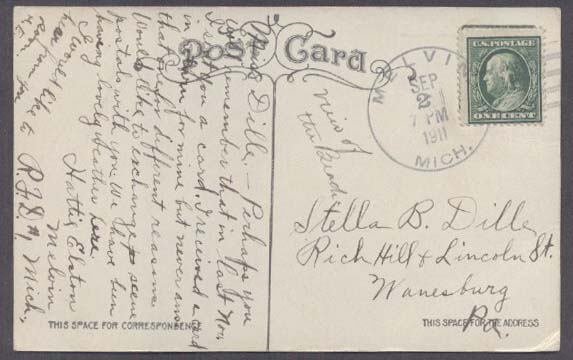 Post Card
MELVIN
SEP
2
7 PM
1911
MICH.
U.S. POSTAGE
ONE CENT
Miss Dille, – Perhaps you
will remember that in last Nov
I sent you a card. I received a card
in return for mine but never ans
that one for different reasons
Would like to exchange scene
postals with you. We have been
having lovely weather here
Hattie Elston
Melvin
R.F.D. #1, Mich.
view of
the
Stella B. Dille
Rich Hill & Lincoln St.
Wanesburg
Pa.
THIS SPACE FOR CORRESPONDENCE
THIS SPACE FOR THE ADDRESS